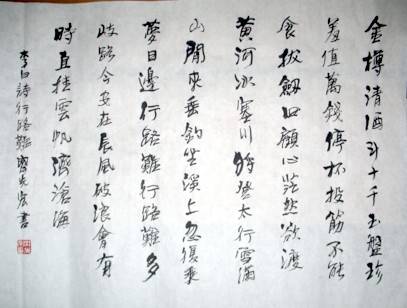 金樽清酒斗十千玉盤珍
羞值萬錢停杯投筋不能
食拔劍四顧心茫然欲渡
黃河冰塞川將登太行雪滿
山閒來垂釣坐溪上忽復乘
夢日邊行路難行路難多
歧路今安在長風破浪會有
時直挂雲帆濟滄海
李白詩行路難 書